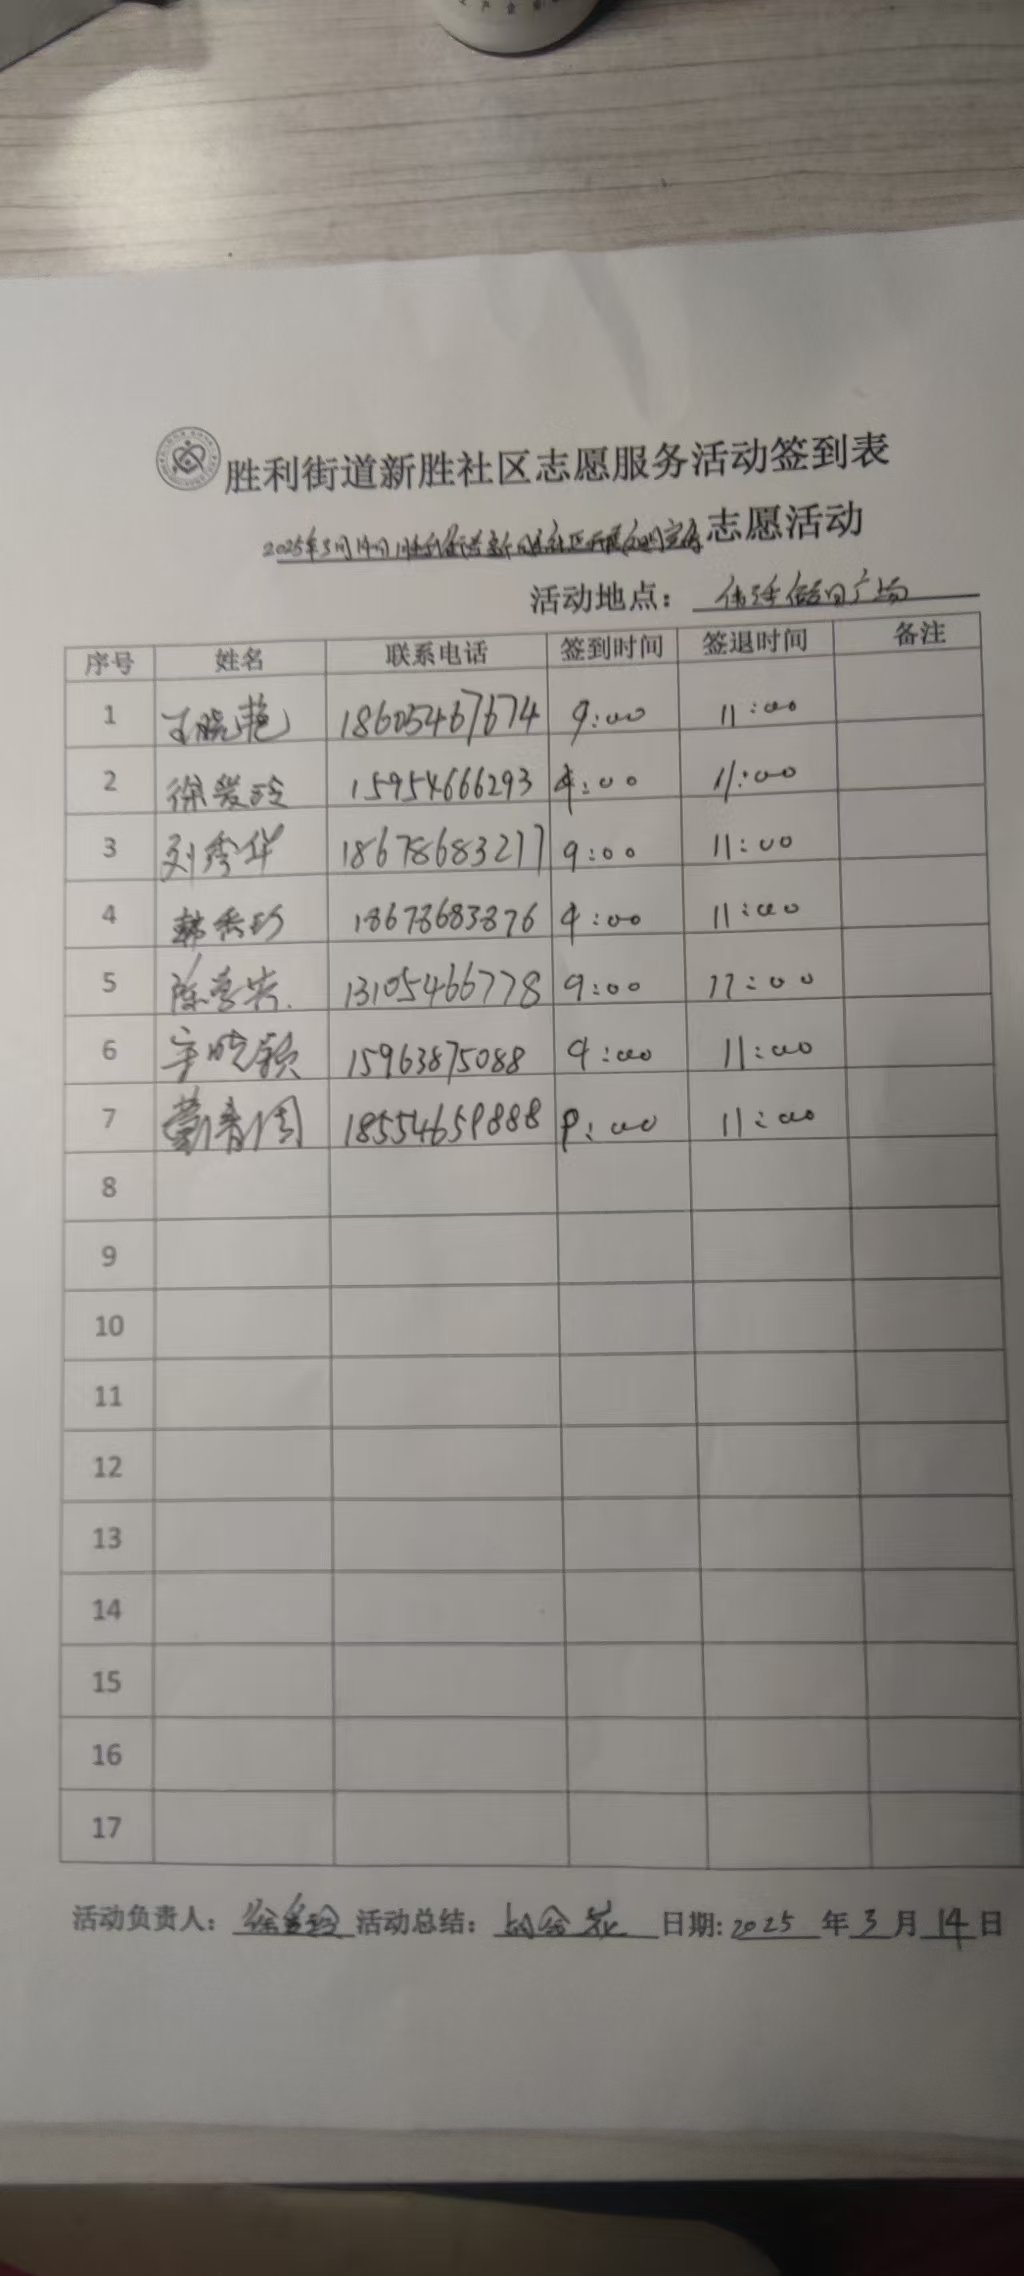 胜利街道新胜社区志愿服务活动签到表
2025年3月14日胜利街道新胜社区开展文明实践志愿活动
活动地点：假日广场
序号 姓名 联系电话 签到时间 签退时间 备注
1 王晓艳 18605467674 9:00 11:00
2 徐爱玲 15954666293 9:00 11:00
3 刘秀华 18678683217 9:00 11:00
4 韩秀珍 18678683876 9:00 11:00
5 陈 13105466778 9:00 11:00
6 辛晓颖 15963875088 9:00 11:00
7 18554659888 9:00 11:00
8
9
10
11
12
13
14
15
16
17
活动负责人：徐爱玲 活动总结： 日期: 2025 年 3 月 14 日